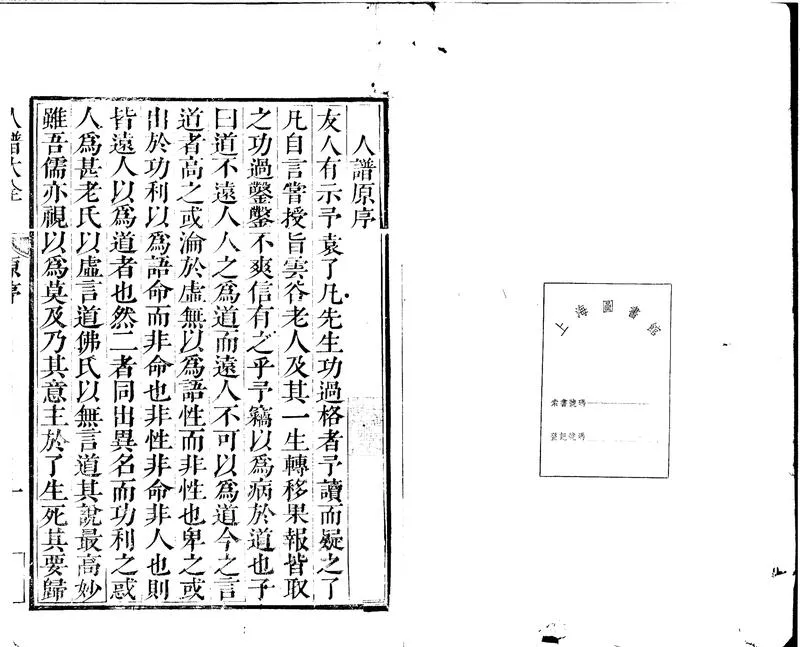 上海圖書館
索書號碼
登記號碼
人譜原序
友人有示予袁了凡先生功過格者予讀而疑之了
凡自言嘗授旨雲谷老人及其一生轉移果報皆取
之功過鑿鑿不爽信有之乎予竊以爲病於道也子
曰道不遠人人之爲道而遠人不可以爲道今之言
道者高之或淪於虛無以爲語性而非性也卑之或
出於功利以爲語命而非命也非性非命非人也則
皆遠人以爲道者也然二者同出異名而功利之惑
人爲甚老氏以虛言道佛氏以無言道其說最高妙
雖吾儒亦視以爲莫及乃其意主於了生死其要歸
人譜大全
原序
一